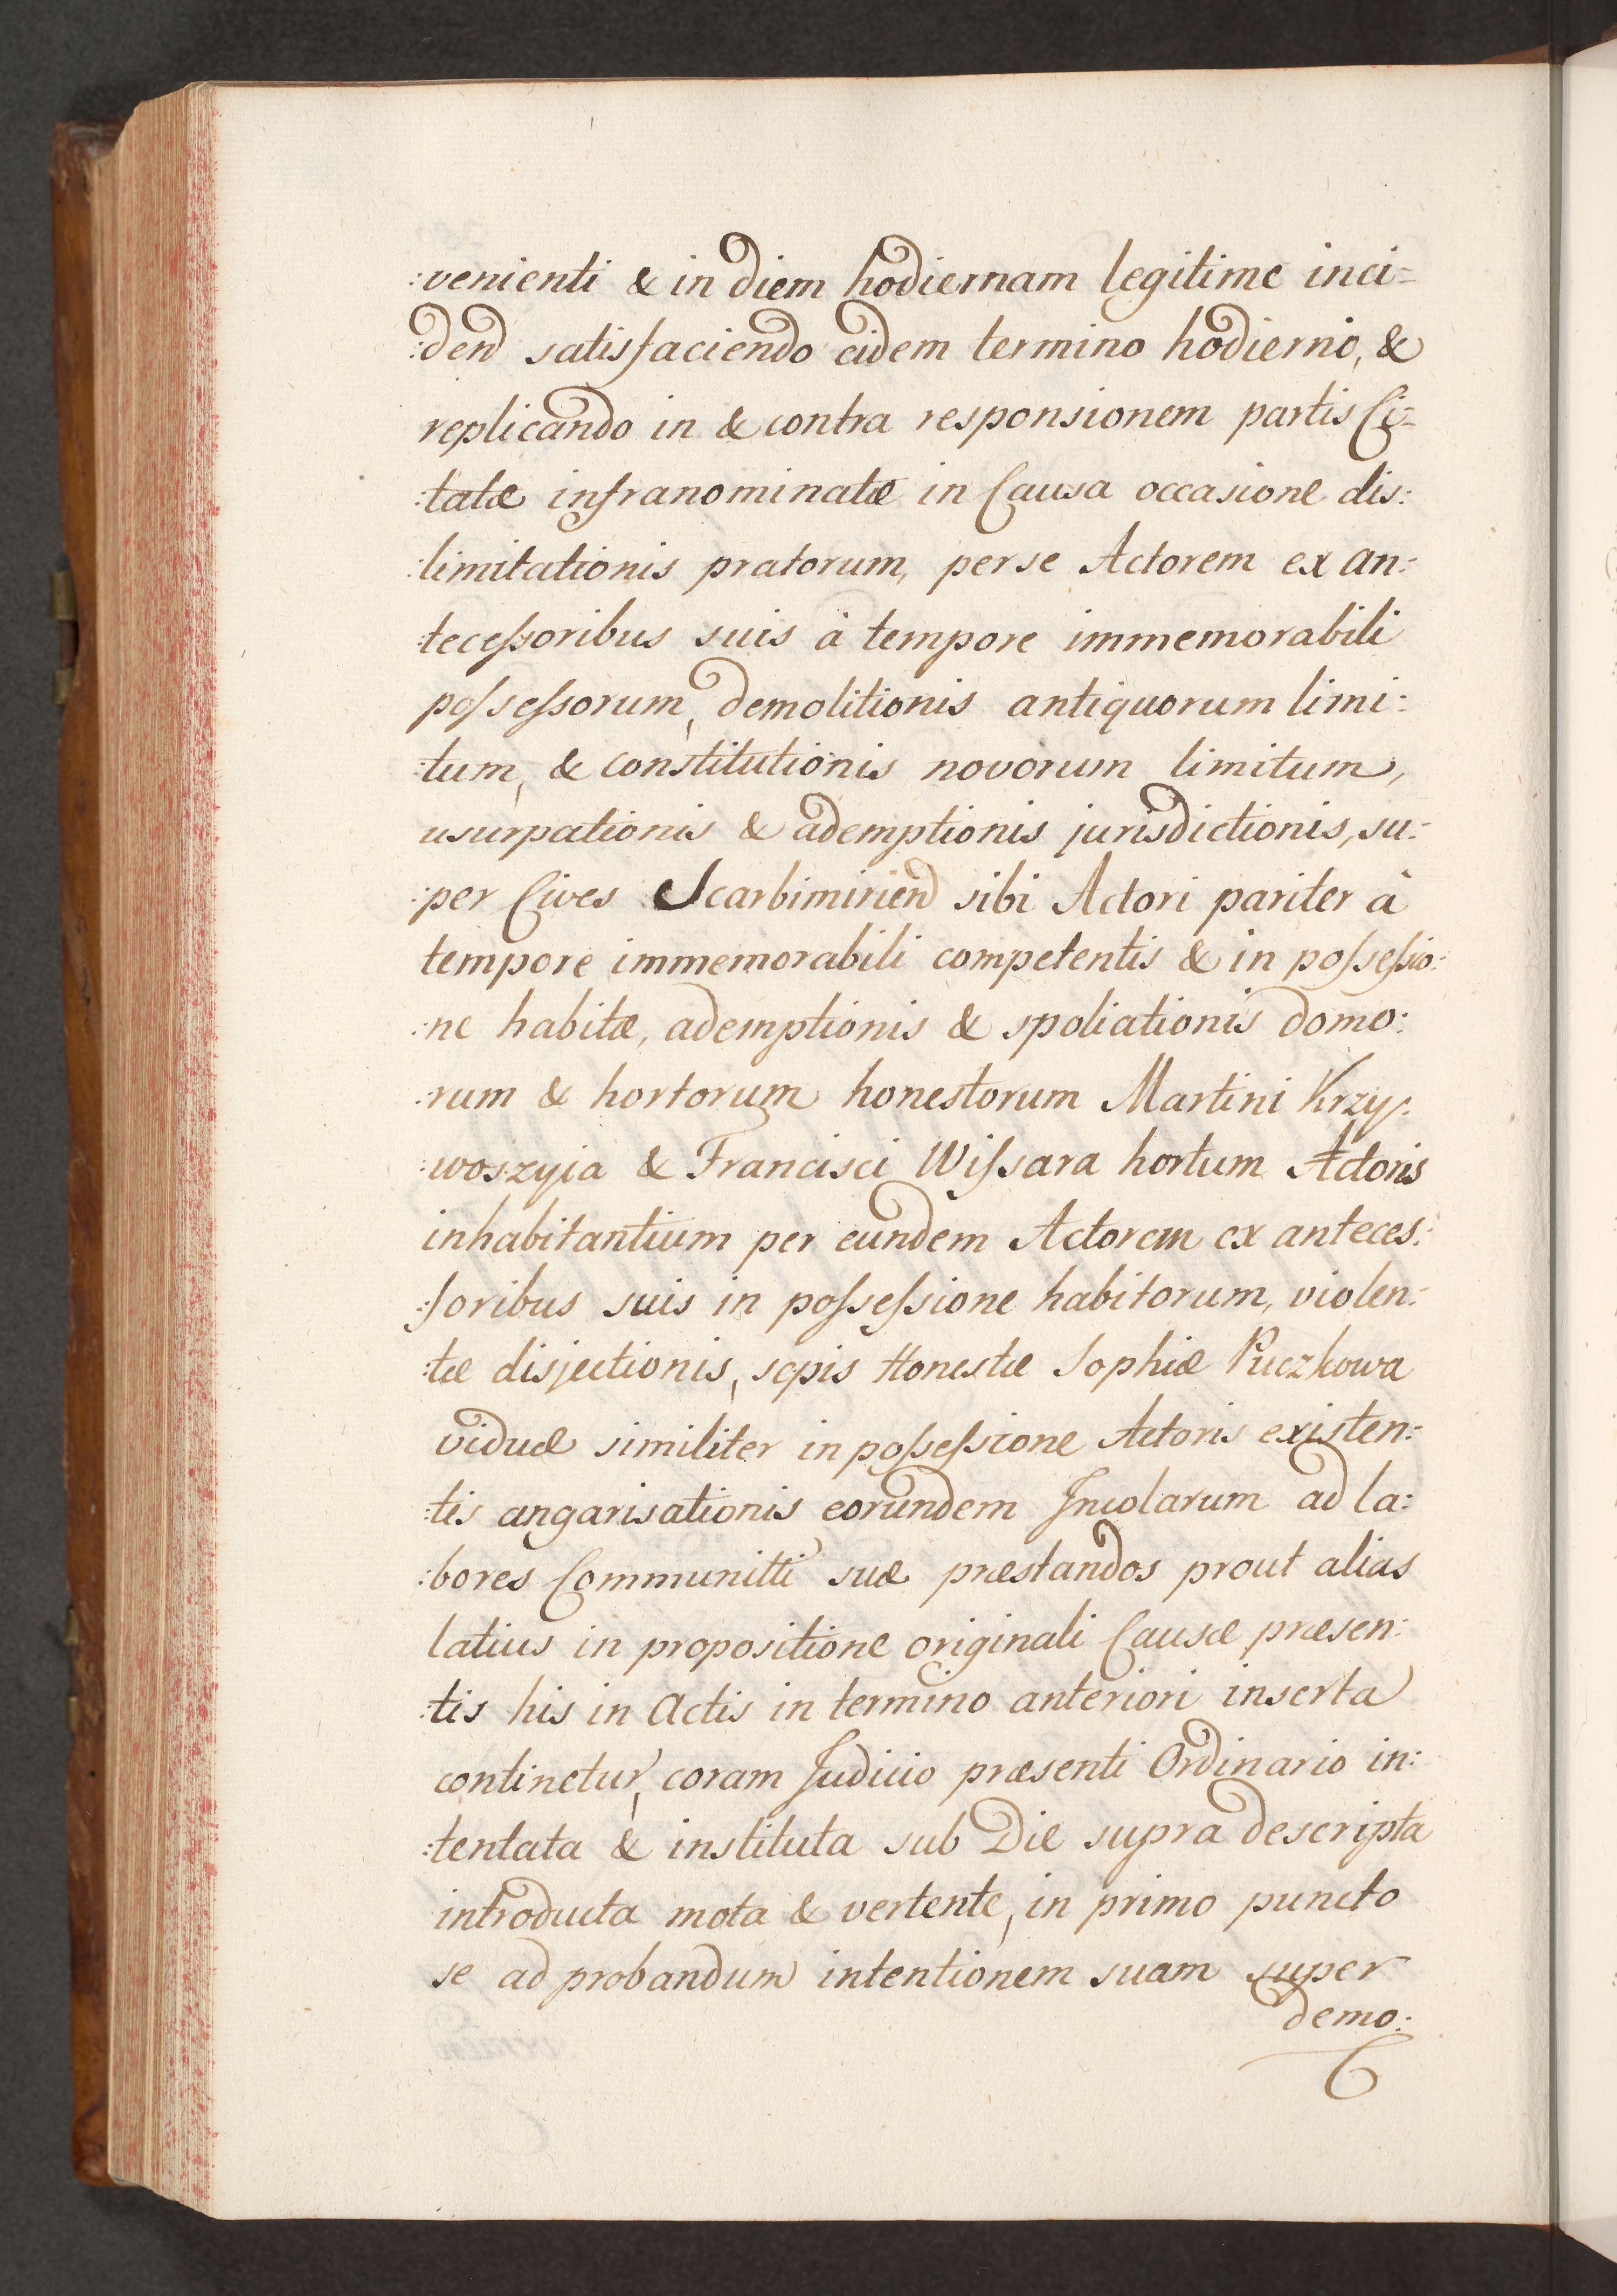 :venienti & in diem hodiernam legitime inci=
:den̄d satisfaciendo eidem termino hodierno, &
replicando in & contra responsionem partis Ci=
:tatæ infranominatæ in Causa occasione dis:
:limitationis pratorum, per se Actorem ex an:
:teceſsoribus suis à tempore immemorabili
poſseſsorum, demolitionis antiquorum limi:
:tum, & constitutionis novorum limitum,
usurpationis & ademptionis jurisdictionis, su:
:per Cives Scarbimirien̄d sibi Actori pariter à
tempore immemorabili competentis & in poſseſsio:
:ne habitæ, ademptionis & spoliationis domo:
:rum & hortorum honestorum Martini Krzy:
:woszyia & Francisci Wiſsara hortum Actoris
inhabitantium per eundem Actorem ex anteces:
:ſoribus suis in poſseſsione habitorum, violen:
:tæ disjectionis, sepis Honestæ Sophiæ Puczkowa
viduæ similiter in poſseſsione Actoris existen:
:tis angarisationis eorundem Incolarum ad la:
:bores Communitti suæ præstandos prout alias
latius in propositione originali Causæ præsen:
:tis his in Actis in termino anteriori inserta
continetur, coram Judicio præsenti Ordinario in:
:tentata & instituta sub Die supra descripta
introducta mota & vertente, in primo puncto
se ad probandum intentionem suam super
demo: